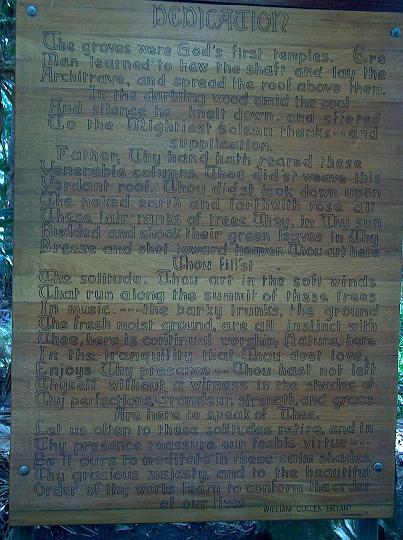 DEDICATION
The groves were God's first temples. Ere
Man learned to hew the shaft and lay the
Architrave, and spread the roof above them.
In the darkling wood amid the cool
And silence he knelt down and offered
To the Mightiest solemn thanks -- and
supplication.
Father, Thy hand hath reared these
Venerable columns. Thou did'st weave this
Verdant roof. Thou did'st look down upon
The naked earth and forthwith rose All
These fair ranks of trees. They, in Thy sun
Budded and shook their green leaves in Thy
Breeze and shot toward heaven Thou art here
Thou fill'st
The solitude. Thou art in the soft winds
That run along the summit of these trees
In music. ---the barky trunks, the ground
The fresh moist ground, are all instinct with
Thee, here is continual worship; Nature, here
In the tranquility that Thou dost love,
Enjoys Thy presence -- Thou hast not left
Thyself without a witness in the shades of
Thy perfections, Grandeur, strength, and grace
Are here to speak of Thee.
Let us often to these solitudes retire, and in
Thy presence reassure our feeble virtue ---
Be it ours to meditate in these calm shades
Thy gracious majesty, and to the beautiful
Order of thy works learn to conform the order
of our lives
WILLIAM CULLEN BRYANT